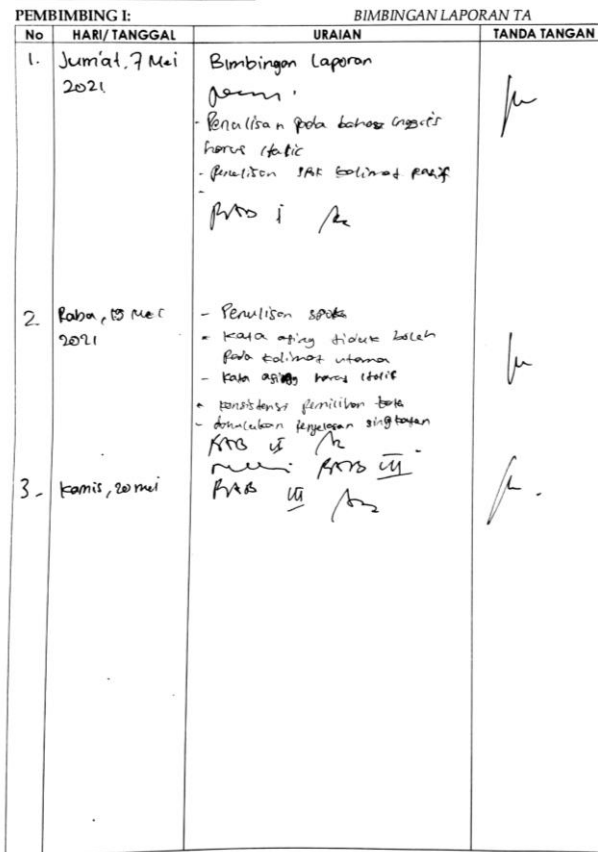 PEMBIMBING I: BIMBINGAN LAPORAN TA
No HARI/TANGGAL URAIAN TANDA TANGAN
1. Jum'at, 7 Mei Bimbingan Laporan
2021
- Penulisan pada bahasa inggris
harus italic
- Penulisan kalimat pasif
-
BAB i
2. Rabu, 19 Mei - Penulisan
2021 - Kata asing tidak boleh
pada kalimat utama
- Kata asing harus italic
- konsistensi pemilihan kata
- penjelasan singkatan
BAB II
BAB III
3. Kamis, 20 mei BAB III